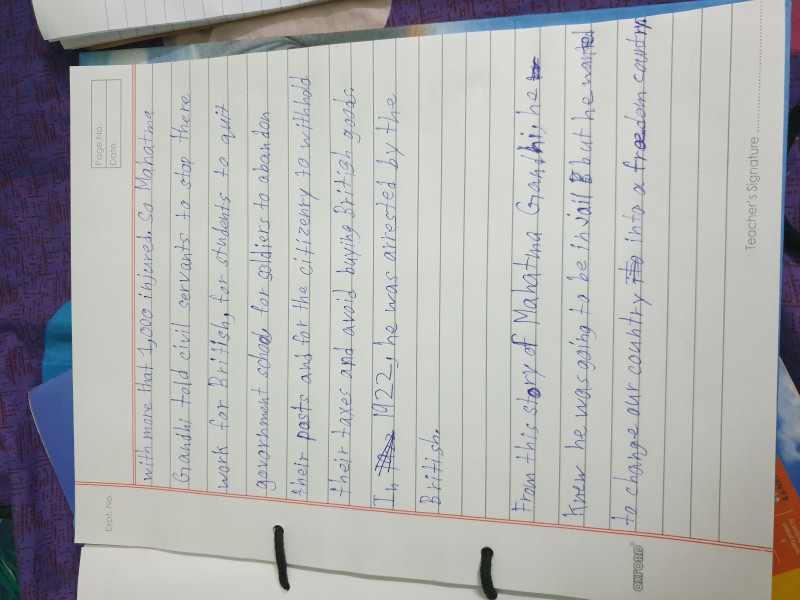 Page No.
Date.
Expt. No.
with more that 1,000 injures. So Mahatma
Grandhi told civil servants to stop there
work for British, for students to quit
government school, for soldiers to abandon
their posts and for the citizenry to withhold
their taxes and avoid buying British goods.
In 1922, he was arrested by the
British.
From this story of Mahatma Grandhi, he
Knew he was going to be in jail but he wanted
to change our country into a freedom country.
Teacher's Signature
OXFORD